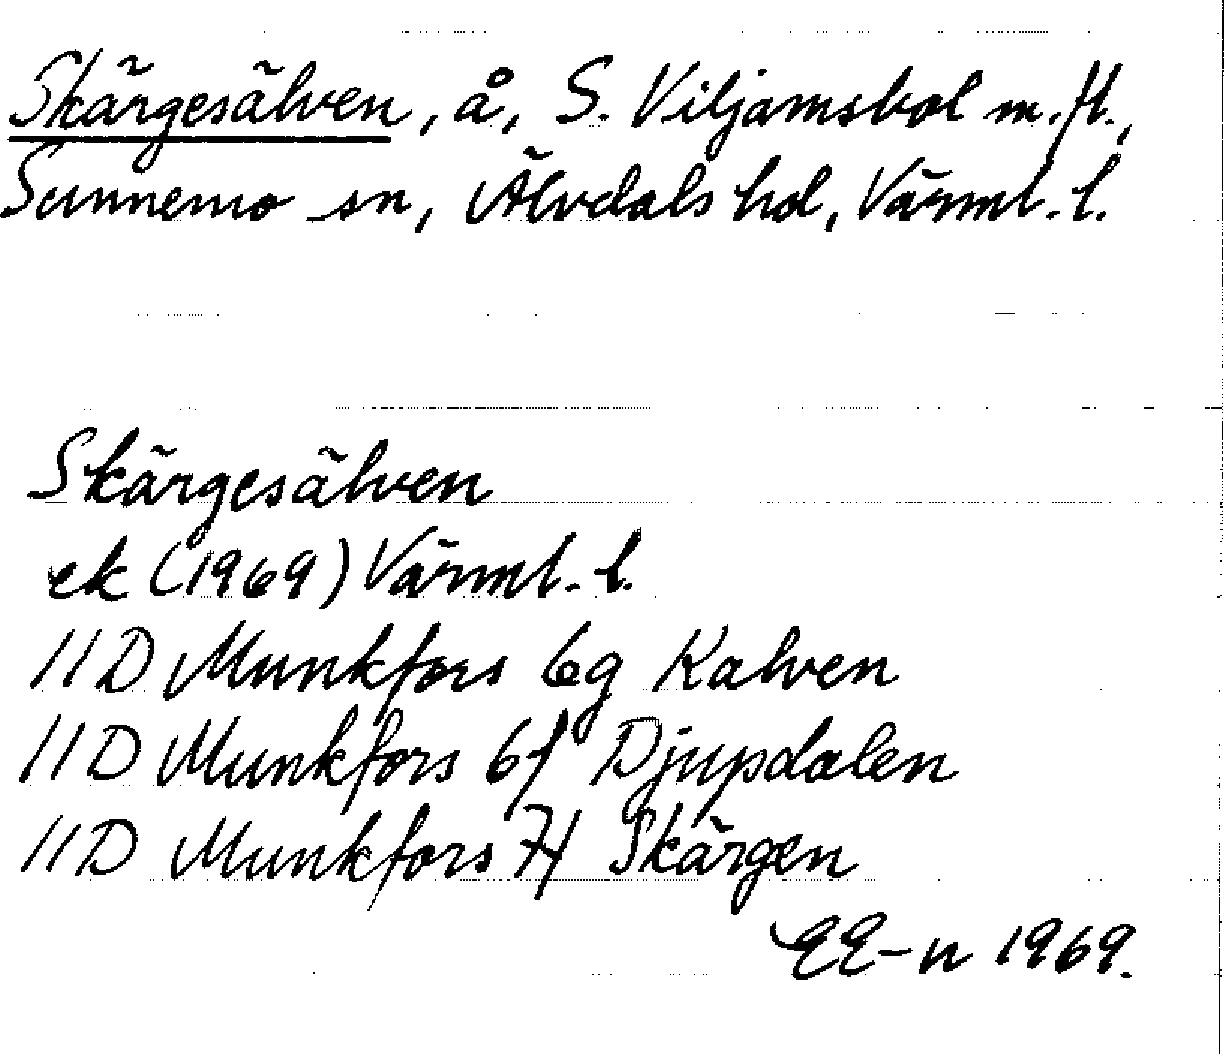 Skärgesälven, å, S. Viljamsbol m.fl.,
Sunnemo sn, Älvdals hd, Värml. l.
Skärgesälven
ek (1969) Värml. l.
11D Munkfors 6g Kalven
11D Munkfors 6f Djupdalen
11D Munkfors 7f Skärgen
EE-n 1969.